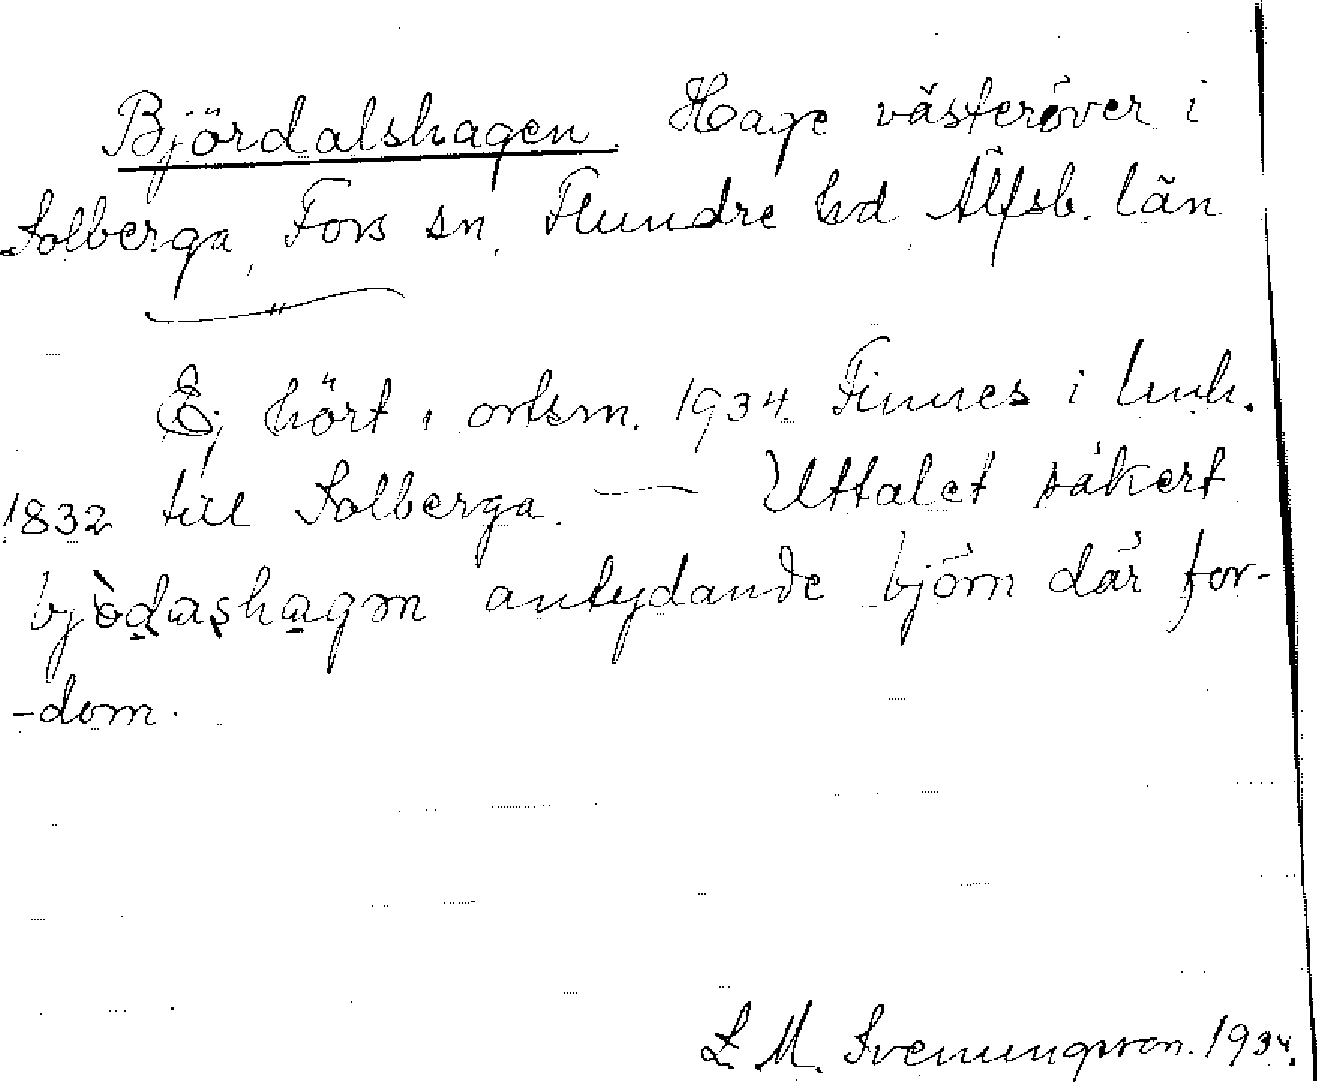 Björdalshagen. Hage västeröver i
Solberga, Fors sn, Flundre hd, Älfsb. län
Ej hört i ortsm. 1934. Finnes i luh.
1832 till Solberga. — Uttalet säkert
bjòdashagən antydande björn där for-
-dom.
L. M. Svenungsson. 1934.